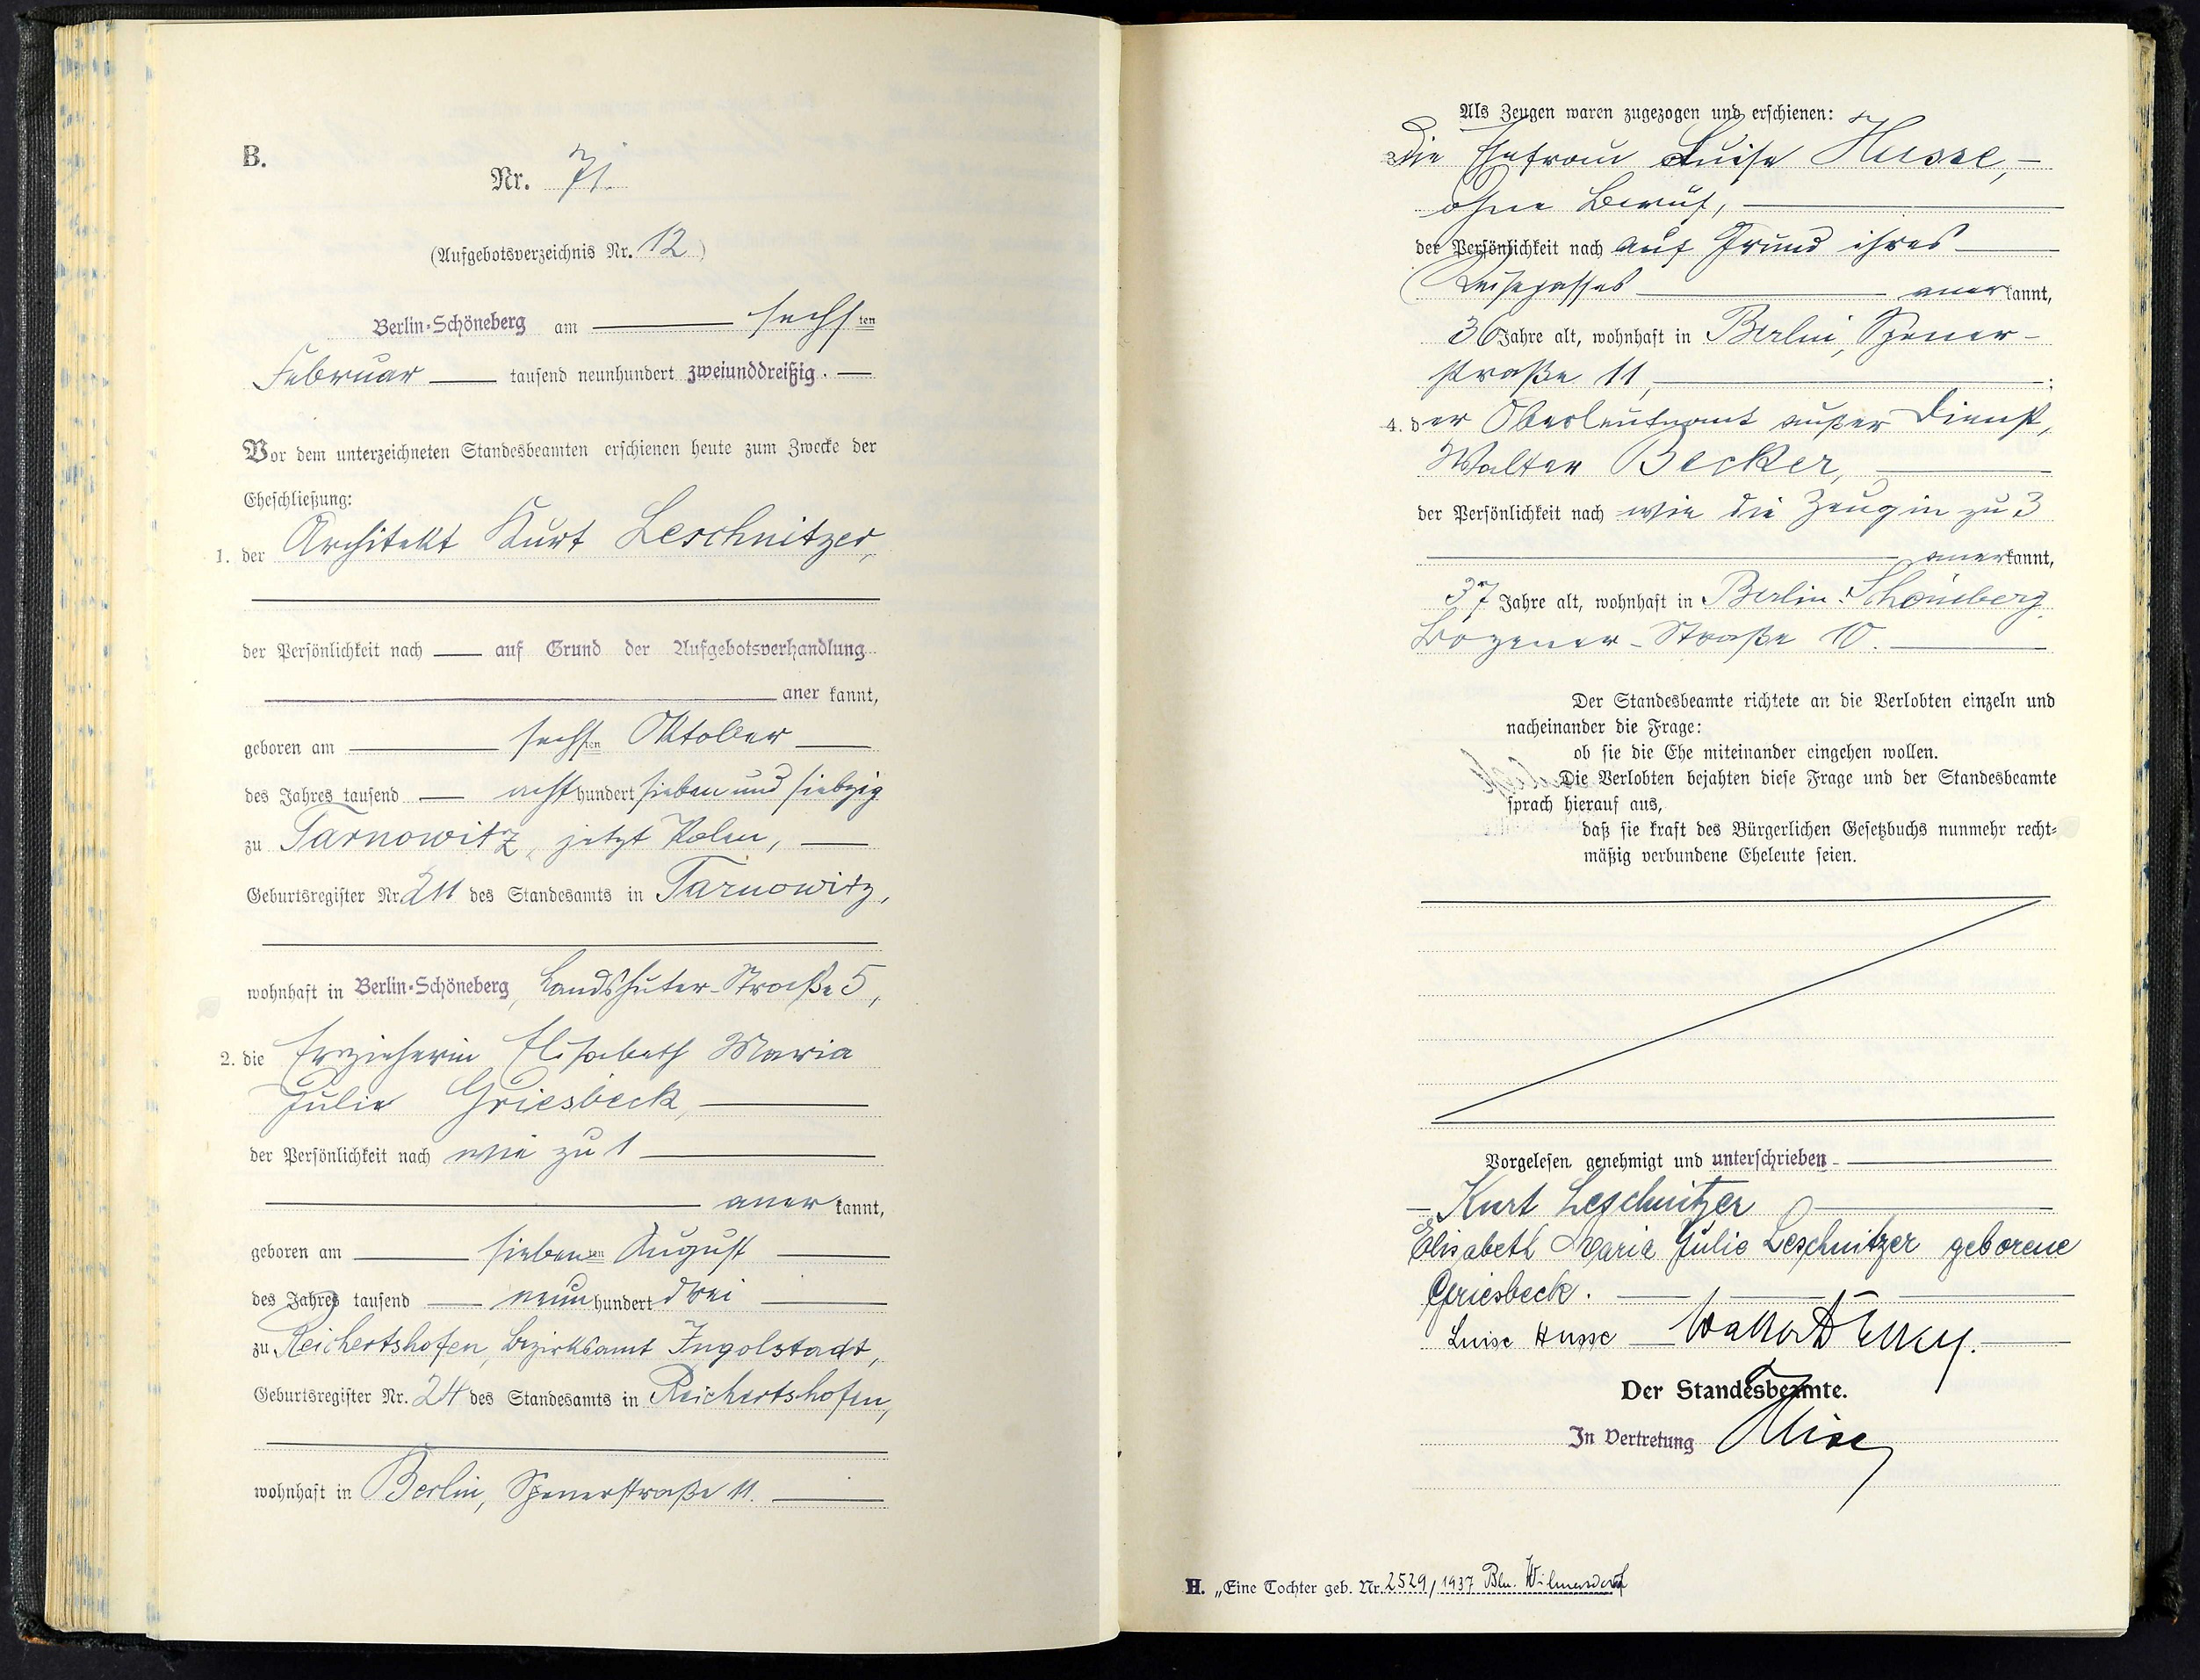 B.
Nr. 71.
(Aufgebotsverzeichnis Nr. 12)
Berlin-Schöneberg am sechsten
Februar tausend neunhundert zweiunddreißig.
Vor dem unterzeichneten Standesbeamten erschienen heute zum Zwecke der
Eheschließung:
1. der Architekt Kurt Leschnitzer,
der Persönlichkeit nach auf Grund der Aufgebotsverhandlung
aner kannt,
geboren am sechsten Oktober
des Jahres tausend achthundert sieben und siebzig
zu Tarnowitz, jetzt Polen,
Geburtsregister Nr. 211 des Standesamts in Tarnowitz,
wohnhaft in Berlin-Schöneberg, Landshuter-Straße 5,
2. die Erzieherin Elisabeth Maria
Julie Griesbeck,
der Persönlichkeit nach wie zu 1
anerkannt,
geboren am siebenten August
des Jahres tausend neunhundert drei
zu Reichertshofen, Bezirksamt Ingolstadt,
Geburtsregister Nr. 24 des Standesamts in Reichertshofen,
wohnhaft in Berlin, Spenerstraße 11.
Als Zeugen waren zugezogen und erschienen:
3. die Ehefrau Luise Husse,
ohne Beruf,
der Persönlichkeit nach auf Grund ihres
Reisepasses anerkannt,
36 Jahre alt, wohnhaft in Berlin, Spener-
straße 11,;
4. der Oberleutnant außer Dienst,
Walter Becker,
der Persönlichkeit nach wie die Zeugin zu 3
anerkannt,
37 Jahre alt, wohnhaft in Berlin-Schöneberg,
Bozener-Straße 10.
Der Standesbeamte richtete an die Verlobten einzeln und
nacheinander die Frage:
ob sie die Ehe miteinander eingehen wollen.
Die Verlobten bejahten diese Frage und der Standesbeamte
sprach hierauf aus,
daß sie kraft des Bürgerlichen Gesetzbuchs nunmehr recht-
mäßig verbundene Eheleute seien.
Vorgelesen, genehmigt und unterschrieben
Kurt Leschnitzer
Elisabeth Maria Julie Leschnitzer geborene
Griesbeck.
Luise Husse Walter Becker.
Der Standesbeamte.
In Vertretung
H. „Eine Tochter geb. Nr. 2529/1937 Bln. Wilmersdorf